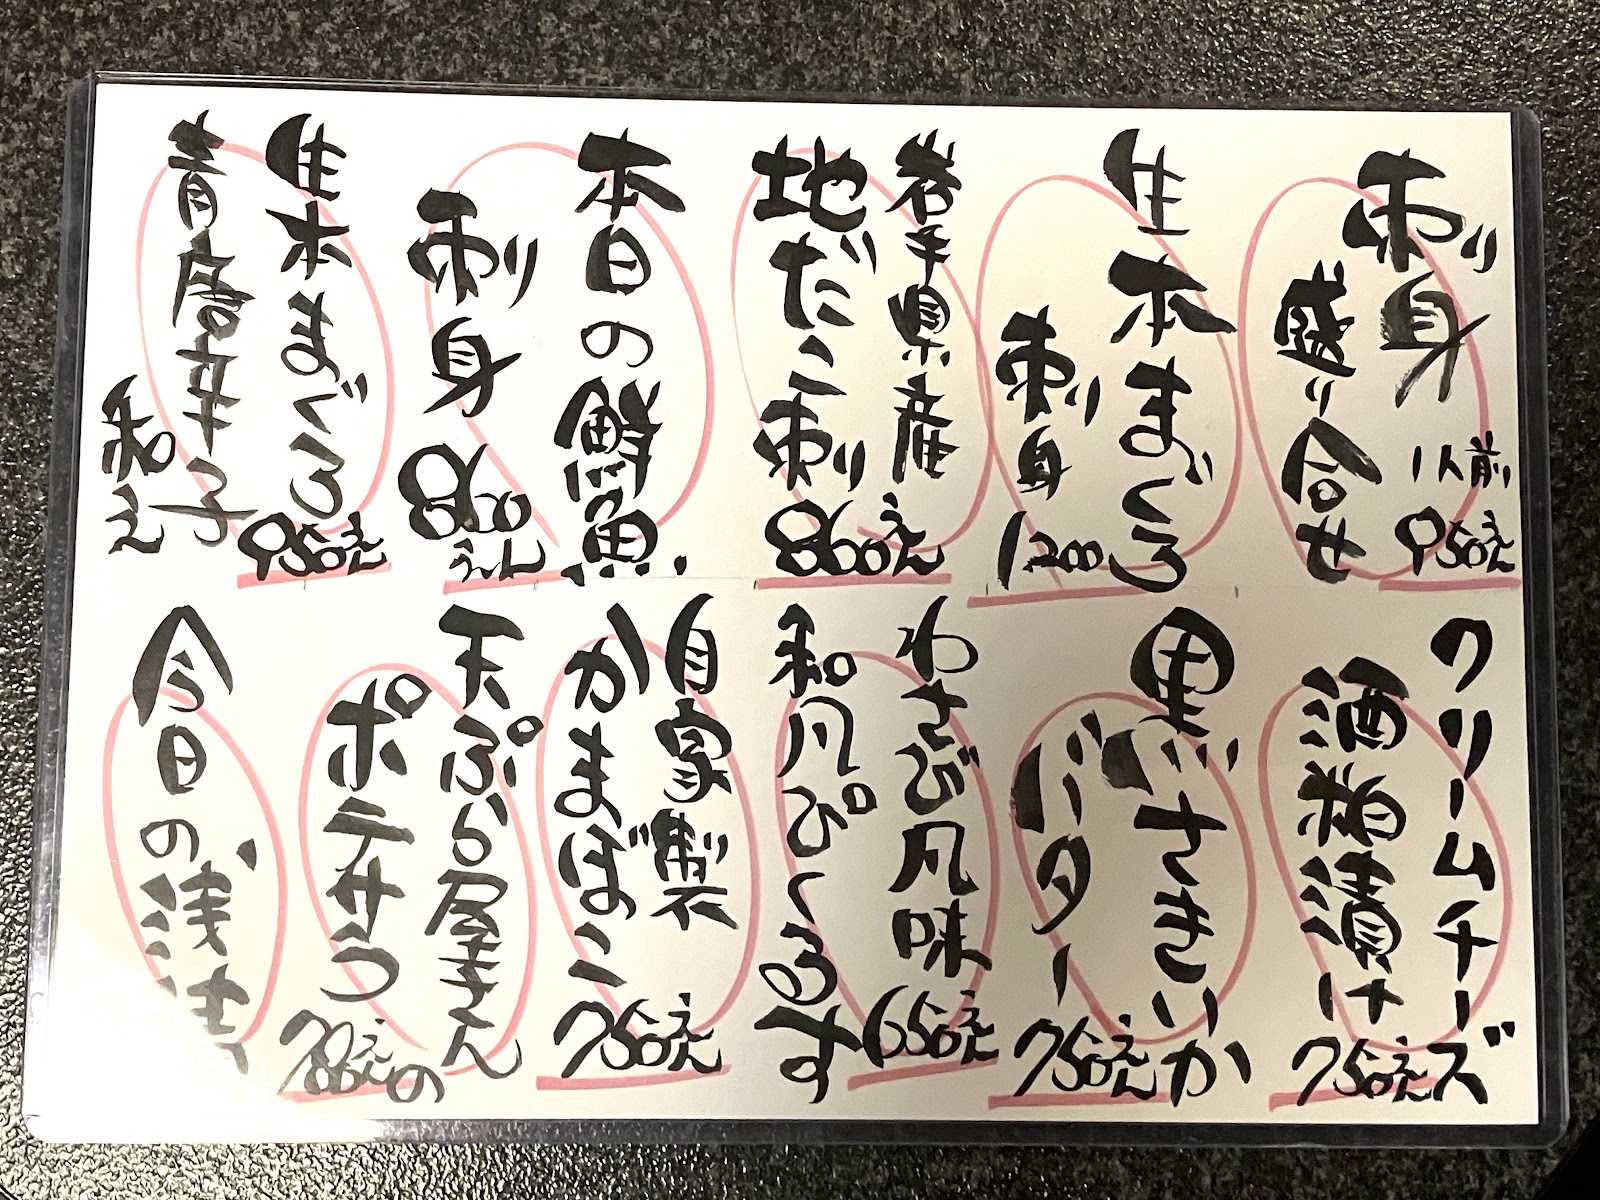 刺身
盛り合せ
1人前
950えん
生本まぐろ
刺身
1200
岩手県産
地だこ刺
860えん
本日の鮮魚
刺身
860えん
生本まぐろ
青唐辛子
和え
950えん
クリームチーズ
酒粕漬け
750えん
黒いさきいか
バター
750えん
わさび風味
和風ぴくるす
650えん
自家製
かまぼこ
750えん
天ぷら屋さんの
ポテサラ
780えん
今日の浅漬